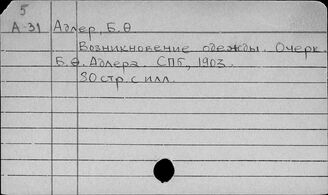 5
А-31 Адлер, Б.Ѳ
Возникновение одежды. Очерк
Б.Ѳ. Адлера. СПб, 1903.
30 стр. с илл.